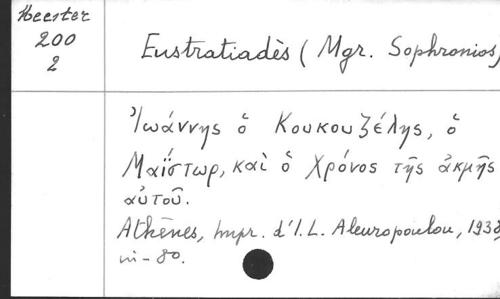 Heester
200
2
Eustratiadès (Mgr. Sophronios)
Ἰωάννης ὁ Κουκουζέλης, ὁ
Μαΐστωρ, καὶ ὁ Χρόνος τῆς ἀκμῆς
αὐτοῦ.
Athènes, Impr. d'I. L. Aleuropoulou, 1938,
in-80.